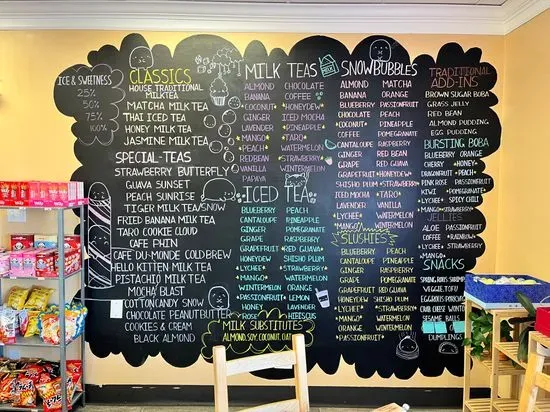 ICE & SWEETNESS
25%
50%
75%
100%
CLASSICS
HOUSE TRADITIONAL
MILKTEA
MATCHA MILK TEA
THAI ICED TEA
HONEY MILK TEA
JASMINE MILK TEA
SPECIAL-TEAS
STRAWBERRY BUTTERFLY
GUAVA SUNSET
PEACH SUNRISE
TIGER MILK TEA/SNOW
FRIED BANANA MILK TEA
TARO COOKIE CLOUD
CAFE PHIN
CAFE DU-MONDE COLD BREW
HELLO KITTEN MILK TEA
PISTACHIO MILK TEA
MOCHA BLAST
COTTON CANDY SNOW
CHOCOLATE PEANUTBUTTER
COOKIES & CREAM
BLACK ALMOND
MILK TEAS
ALMOND CHOCOLATE
BANANA COFFEE
COCONUT *HONEYDEW*
GINGER ICED MOCHA
LAVENDER PINEAPPLE
*MANGO* *TARO*
*PEACH* WATERMELON
REDBEAN *STRAWBERRY*
VANILLA WINTERMELON
PAPAYA
ICED TEA
BLUEBERRY PEACH
CANTALOUPE PINEAPPLE
GINGER POMEGRANATE
GRAPE RASPBERRY
GRAPEFRUIT RED GUAVA
HONEYDEW SHISHO PLUM
*LYCHEE* *STRAWBERRY*
*MANGO* WATERMELON
WINTERMELON ORANGE
*PASSIONFRUIT* LEMON
HONEY LAVENDER
*ROSE* HIBISCUS
MILK SUBSTITUTES
ALMOND, SOY, COCONUT, OAT
SNOWBUBBLES
ALMOND MATCHA
BANANA ORANGE
BLUEBERRY PASSIONFRUIT
CHOCOLATE PEACH
*COCONUT* PINEAPPLE
COFFEE POMEGRANATE
CANTALOUPE RASPBERRY
GINGER RED BEAN
GRAPE RED GUAVA
GRAPEFRUIT *HONEYDEW*
SHISHO PLUM *STRAWBERRY*
ICED MOCHA *TARO*
LAVENDER VANILLA
*LYCHEE* WATERMELON
*MANGO* WINTERMELON
SLUSHIES
BLUEBERRY PEACH
CANTALOUPE PINEAPPLE
GINGER POMEGRANATE
GRAPE RASPBERRY
GRAPEFRUIT RED GUAVA
HONEYDEW SHISHO PLUM
*LYCHEE* *STRAWBERRY*
*MANGO* WATERMELON
ORANGE WINTERMELON
*PASSIONFRUIT*
TRADITIONAL
ADD-INS
BROWN SUGAR BOBA
GRASS JELLY
RED BEAN
ALMOND PUDDING
EGG PUDDING
BURSTING BOBA
BLUEBERRY ORANGE
CHERRY
*HONEY* PEACH
PINK ROSE PASSIONFRUIT
KIWI POMEGRANATE
*LYCHEE* SPICY CHILI
*MANGO* *STRAWBERRY*
JELLIES
ALOE PASSIONFRUIT
COFFEE *RAINBOW*
*LYCHEE* STRAWBERRY
*MANGO*
SNACKS
SPRING ROLLS, SHRIMP
VEGGIE, TOFU
EGGROLLS
CRAB CHEESE WONTON
SESAME BALLS
DUMPLINGS